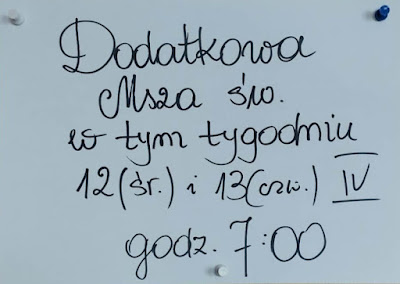 Dodatkowa
Msza św.
w tym tygodniu
12 (śr.) i 13 (czw.) IV
godz. 7:00